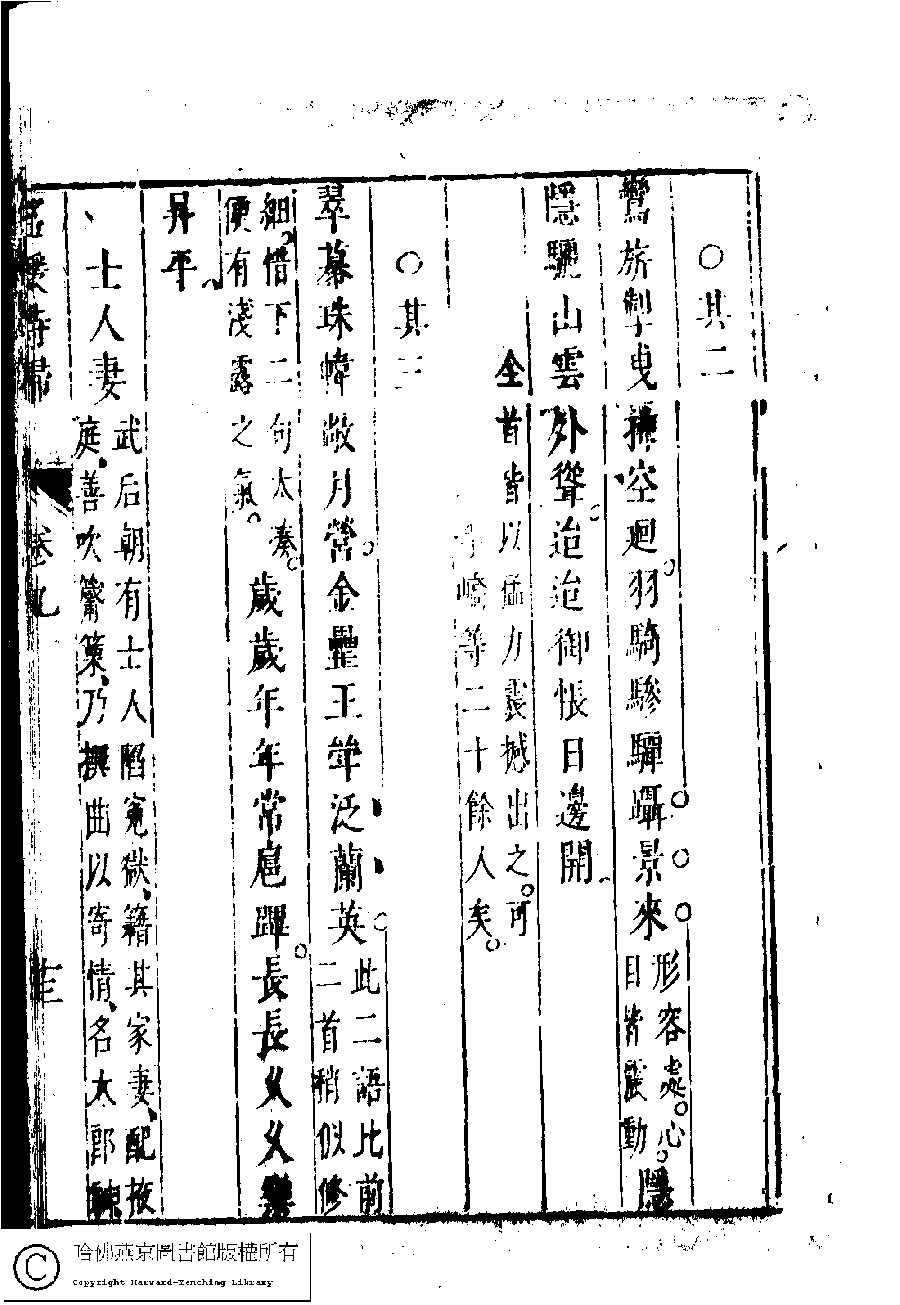 ○其二
鸞旂掣曳攇空迴羽騎驂驔躡景來形容處心目皆震動隱
隱驪山雲外聳迢迢御帳日邊開
全首皆以猛力震撼出之可
等二十餘人矣
○其三
翠幕珠幃敞月營金罍玉斝泛蘭英此二語比前二首稍似修
細惜下二句太湊便有淺露之氣歲歲年年常扈蹕長長久久樂
昇平
士人妻武后朝有士人陷寃獄籍其家妻配掖庭善吹觱篥乃撰曲以寄情名大郎
名媛詩歸
卷九
哈佛燕京圖書館版權所有
Copyright Harvard-Yenching Library